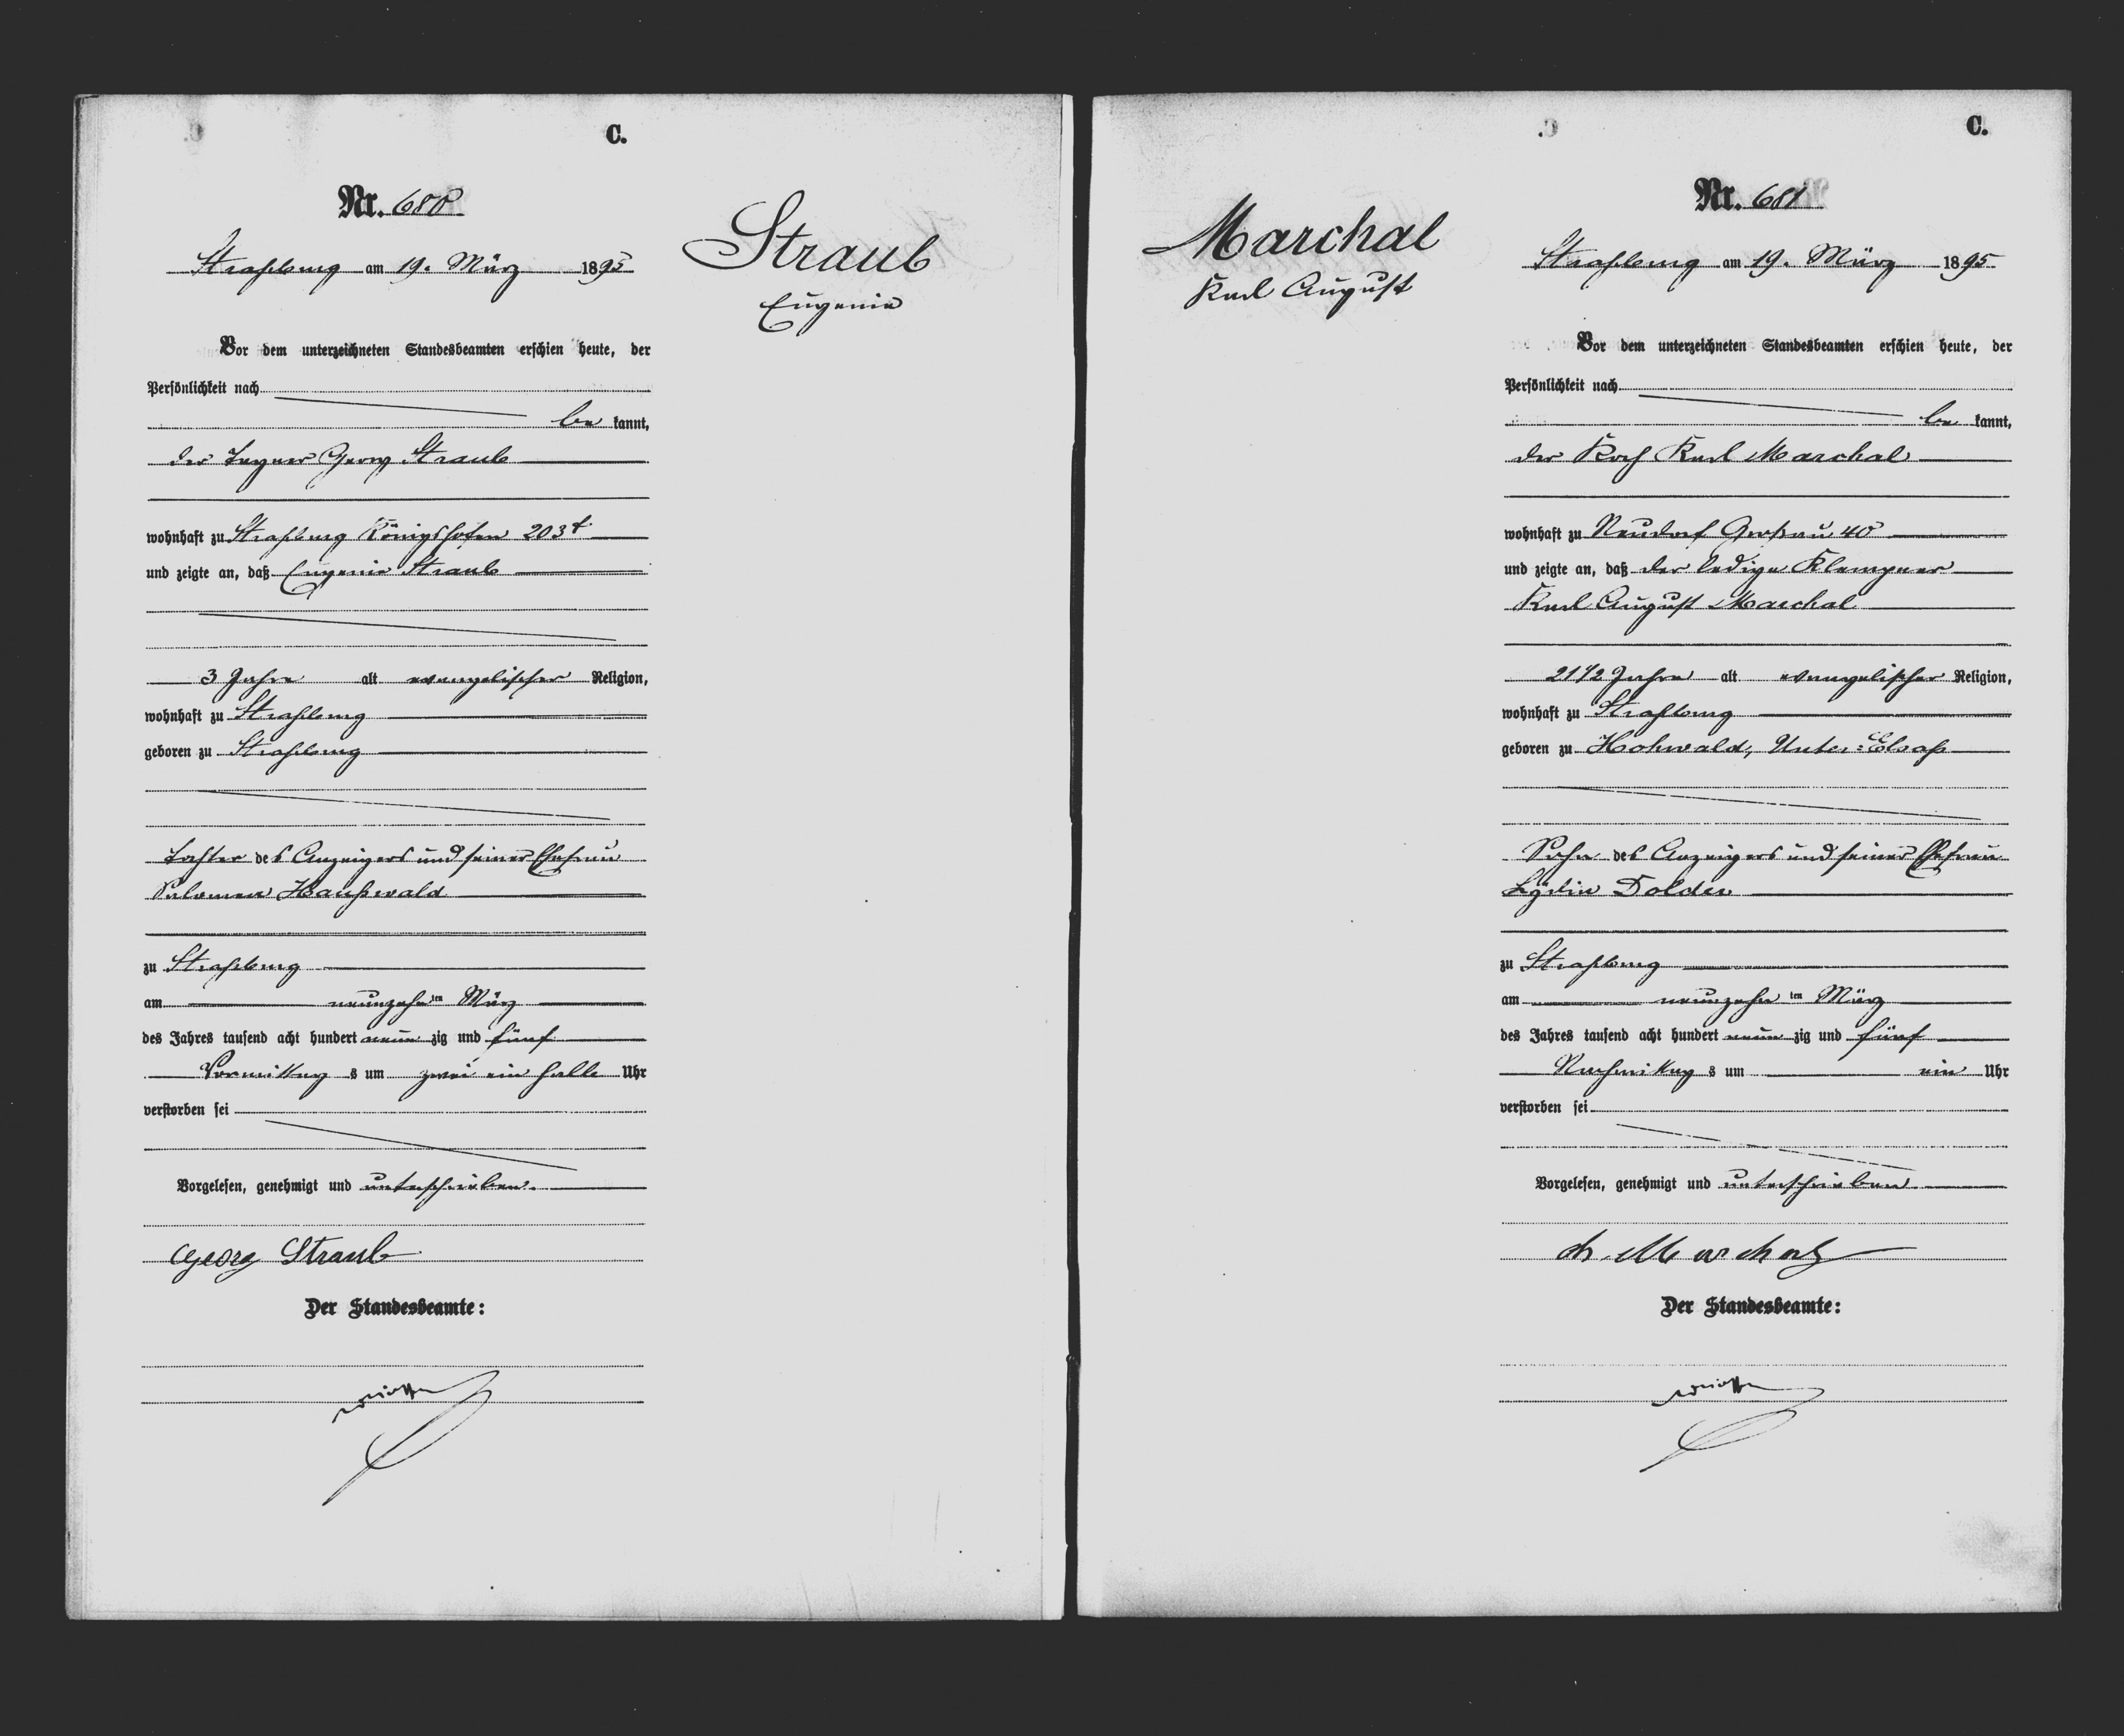 C.
Nr. 680
Straßburg am 19. März 1895
Straub
Eugenie
Vor dem unterzeichneten Standesbeamten erschien heute, der
Persönlichkeit nach
be kannt,
der Tagner Georg Straub
wohnhaft zu Straßburg Königshofen 203
und zeigte an, daß Eugenie Straub
3 Jahre alt evangelischer Religion,
wohnhaft zu Straßburg
geboren zu Straßburg
Tochter des Anzeigers und seiner Ehefrau
Salomea Haußwald
zu Straßburg
am neunzehn ten März
des Jahres tausend acht hundert neun zig und fünf
Vormittag s um zwei ein halb Uhr
verstorben sei
Vorgelesen, genehmigt und unterschrieben.
Georg Straub
Der Standesbeamte:
C.
Nr. 681
Marchal
Karl August
Straßburg am 19. März 1895
Vor dem unterzeichneten Standesbeamten erschien heute, der
Persönlichkeit nach
be kannt,
der Koch Karl Marchal
wohnhaft zu Neudorf 40
und zeigte an, daß der ledige Klempner
Karl August Marchal
21 1/2 Jahre alt evangelischer Religion,
wohnhaft zu Straßburg
geboren zu Hohwald, Unter-Elsaß
Sohn des Anzeigers und seiner Ehefrau
Lydia Dolder
zu Straßburg
am neunzehn ten März
des Jahres tausend acht hundert neun zig und fünf
Nachmittag s um ein Uhr
verstorben sei
Vorgelesen, genehmigt und unterschrieben
ch. Marchal
Der Standesbeamte: